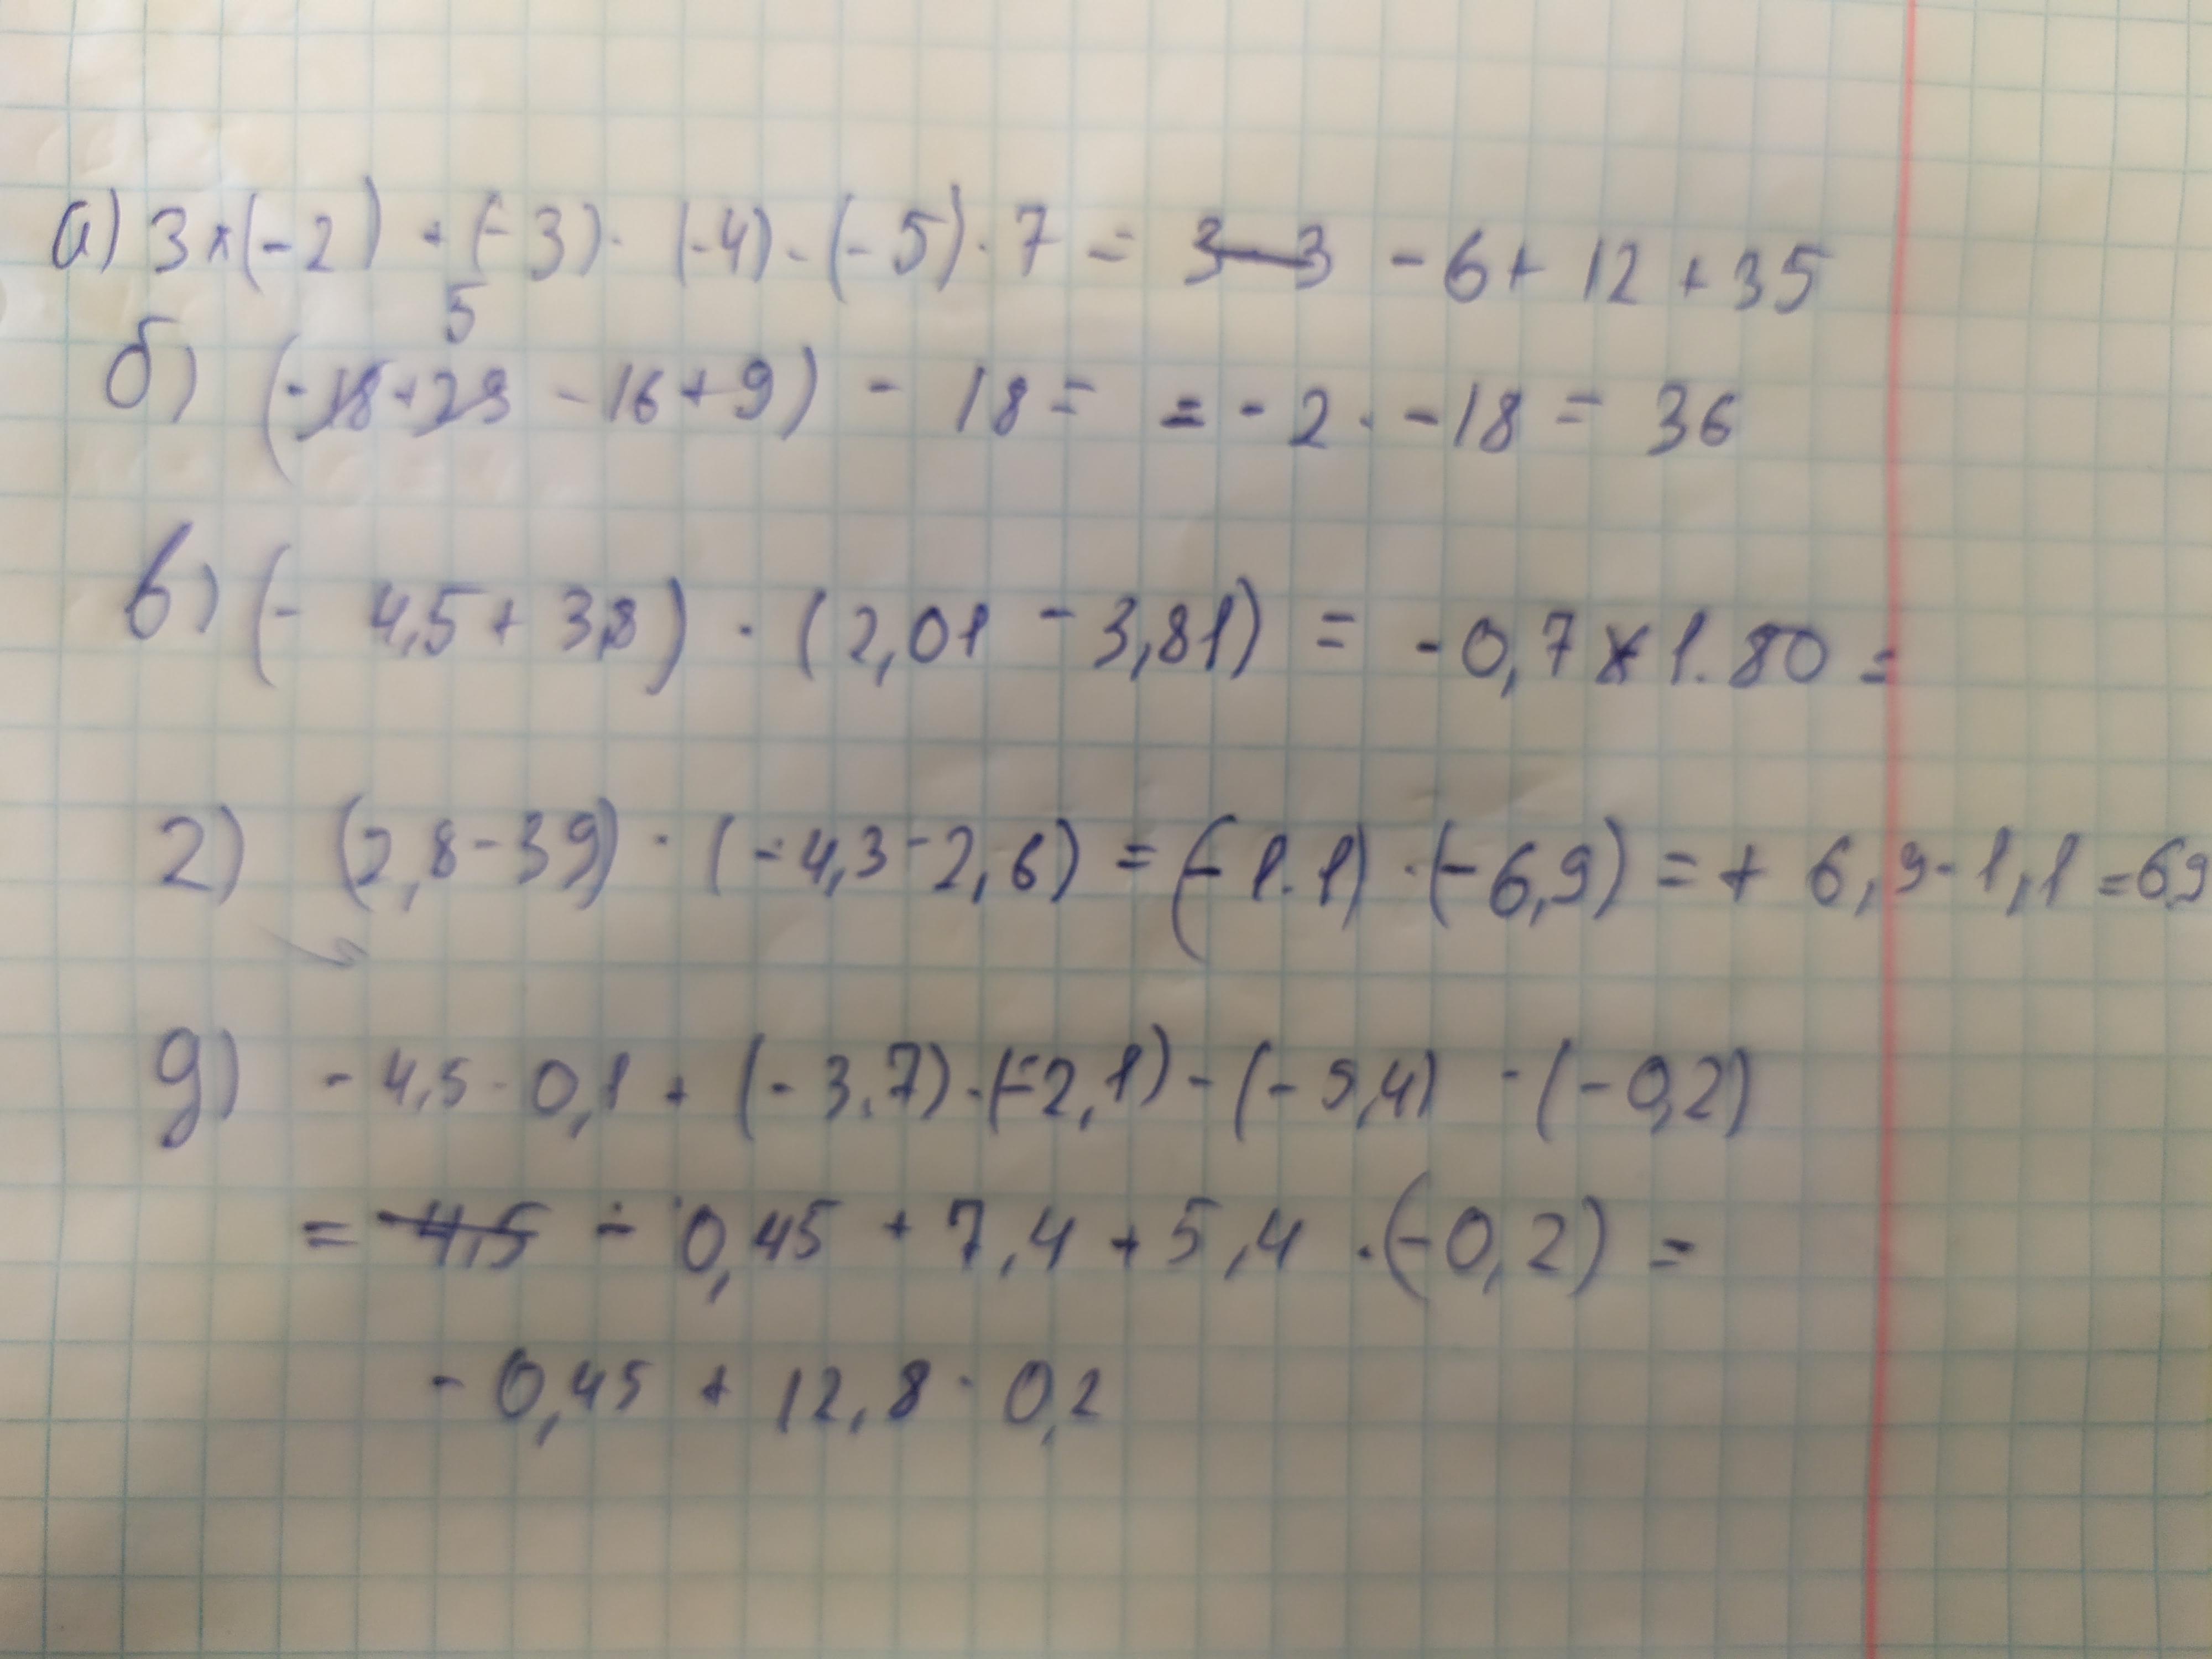 а) 3 × (-2) + (-3) · (-4) - (-5) · 7 = 3 - 3 - 6 + 12 + 35
5
б) (-18 + 23 - 16 + 9) - 18 = = - 2 · -18 = 36
в) (- 4,5 + 3,8) · (2,01 - 3,81) = - 0,7 × 1.80 =
г) (2,8 - 3,9) · (-4,3 - 2,6) = (-1.1) · (-6,9) = + 6,9 · 1,1 = 6,9
д) - 4,5 · 0,1 + (-3,7) · (-2,1) - (-5,4) · (-0,2)
= - 4,5 - 0,45 + 7,4 + 5,4 · (-0,2) =
- 0,45 + 12,8 · 0,2